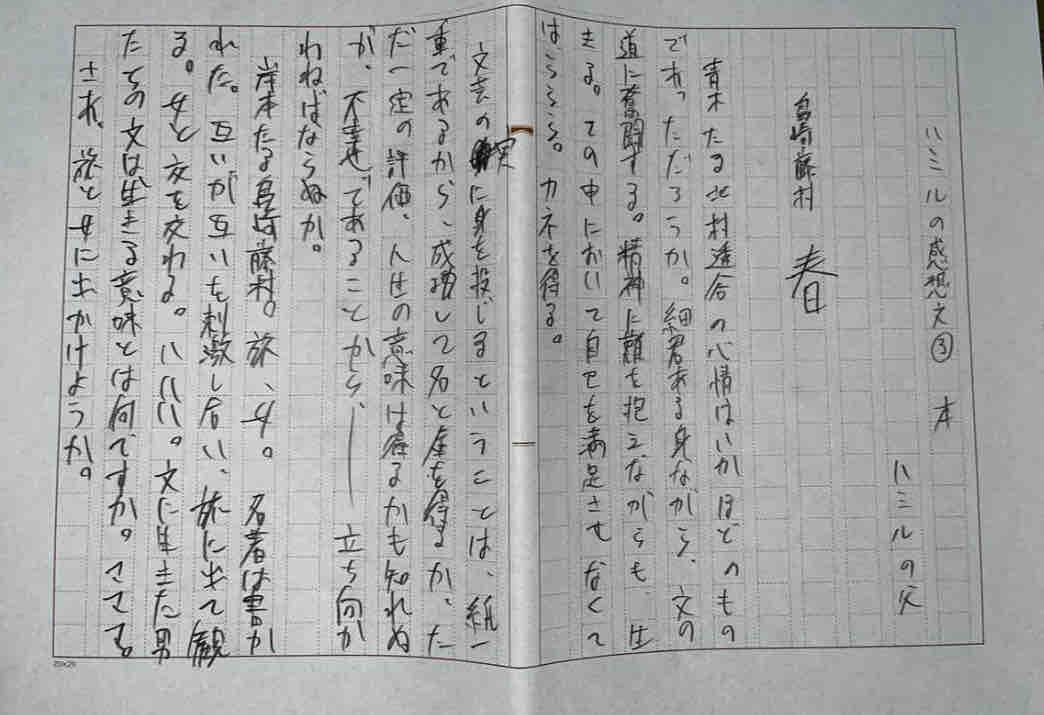 ハミルの感想文③ 本
ハミルの父
島崎藤村 春
青木たる北村透谷の心情はいかほどのもの
であっただろうか。細君ある身ながら、文の
道に奮闘する。精神に難を抱えながらも、生
きる。その中において自己を満足させなくて
はならない。カネを得る。
文芸の実に身を投じるということは、紙一
重であるから、成功して名と産を得るか、た
だ一定の評価、人生の意味は得るかも知れぬ
が、不幸せであることから、――立ち向か
わねばならぬか。
岸本たる島崎藤村。旅、女。名著は書か
れた。互いが互いを刺激し合い、旅に出て観
る。女と交を交わる。ハハハ。文に生きた男
たちの文は生きる意味とは何ですか。ささる。
され、旅と女に出かけようか。
20×20